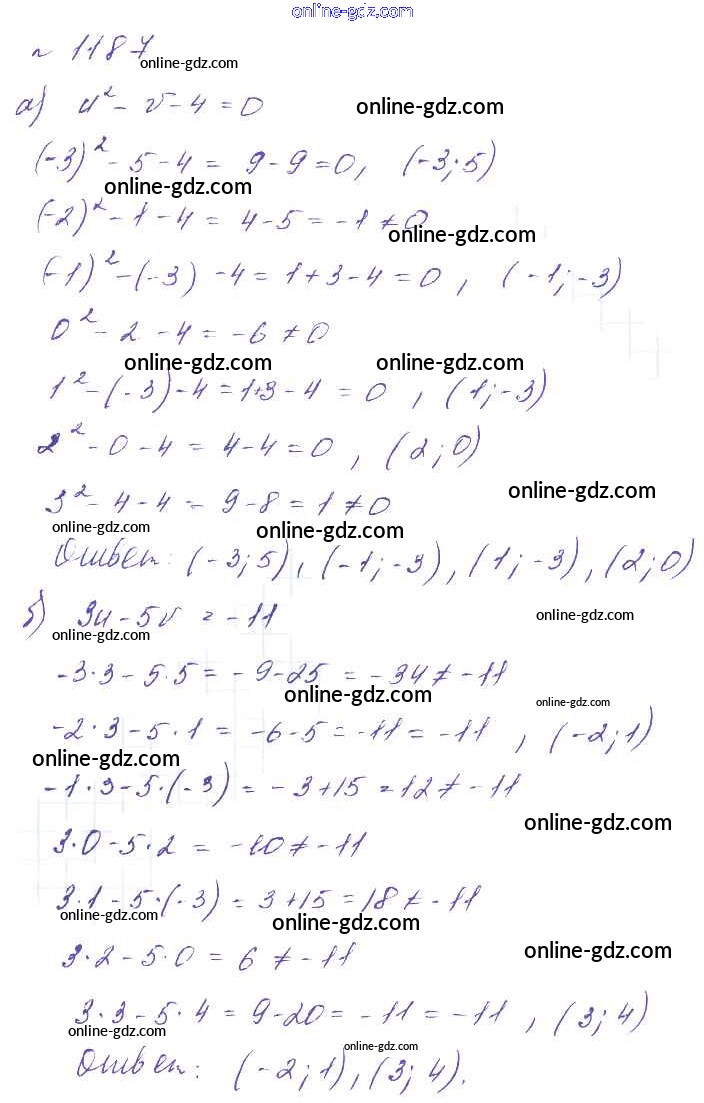 online-gdz.com
№ 1187
online-gdz.com
а) u² - v - 4 = 0 online-gdz.com
(-3)² - 5 - 4 = 9 - 9 = 0, (-3; 5)
online-gdz.com
(-2)² - 1 - 4 = 4 - 5 = -1 ≠ 0
online-gdz.com
(-1)² - (-3) - 4 = 1 + 3 - 4 = 0, (-1; -3)
0² - 2 - 4 = -6 ≠ 0
online-gdz.com online-gdz.com
1² - (-3) - 4 = 1+3 - 4 = 0, (1; -3)
2² - 0 - 4 = 4 - 4 = 0, (2; 0)
3² - 4 - 4 = 9 - 8 = 1 ≠ 0 online-gdz.com
online-gdz.com online-gdz.com
Ответ: (-3; 5), (-1; -3), (1; -3), (2; 0)
б) 3u - 5v = -11 online-gdz.com
online-gdz.com
-3·3 - 5·5 = -9 - 25 = -34 ≠ -11
online-gdz.com online-gdz.com
-2·3 - 5·1 = -6 - 5 = -11 = -11, (-2; 1)
online-gdz.com
-1·3 - 5·(-3) = -3 + 15 = 12 ≠ -11
online-gdz.com
3·0 - 5·2 = -10 ≠ -11
3·1 - 5·(-3) = 3 + 15 = 18 ≠ -11
online-gdz.com online-gdz.com
3·2 - 5·0 = 6 ≠ -11 online-gdz.com
3·3 - 5·4 = 9 - 20 = -11 = -11, (3; 4)
online-gdz.com
online-gdz.com
Ответ: (-2; 1), (3; 4).